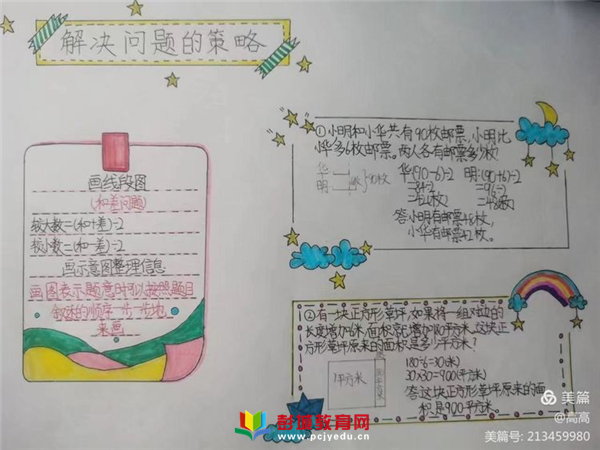 解决问题的策略
画线段图
(和差问题)
较大数=(和+差)÷2
较小数=(和-差)÷2
画示意图整理信息
画图表示题意时可以按照题目
叙述的顺序一步一步地
来画
①小明和小华共有90枚邮票,小明比
小华多6枚邮票。两人各有邮票多少枚?
华
明
90枚
华:(90-6)÷2
=84÷2
=42(枚)
明:(90+6)÷2
=96÷2
=48(枚)
答:小明有邮票48枚,
小华有邮票42枚。
②有一块正方形草坪,如果将一组对边的
长度增加6米,面积就增加180平方米。这块正
方形草坪原来的面积是多少平方米?
?平方米
180÷6=30(米)
30×30=900(平方米)
答:这块正方形草坪原来的面
积是900平方米。
彭城教育网
www.pcjyedu.cn
美篇
@高高
美篇号: 213459980